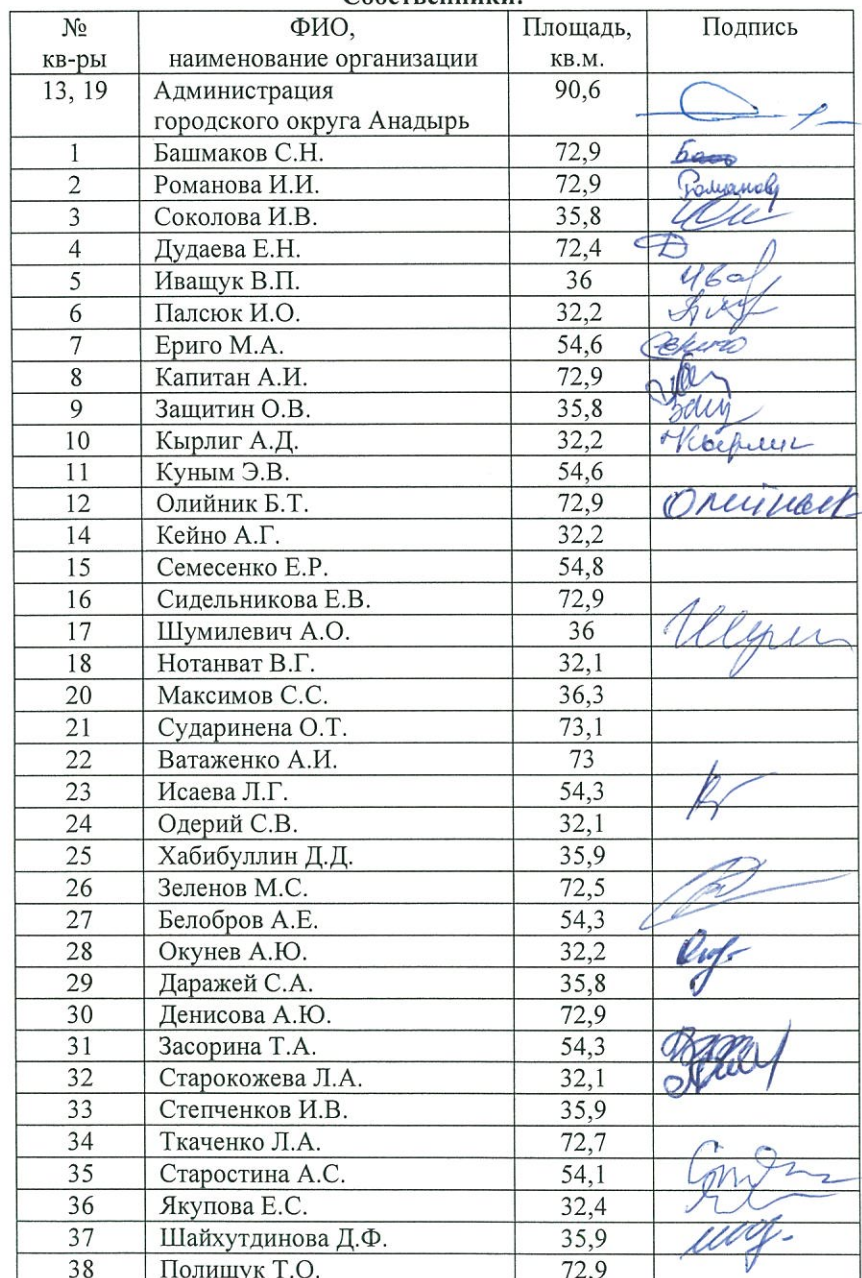 Собственники:
№ ФИО, Площадь, Подпись
кв-ры наименование организации кв.м.
13, 19 Администрация 90,6
городского округа Анадырь
1 Башмаков С.Н. 72,9
2 Романова И.И. 72,9 Романова
3 Соколова И.В. 35,8
4 Дудаева Е.Н. 72,4
5 Иващук В.П. 36 Ива
6 Палсюк И.О. 32,2
7 Ериго М.А. 54,6
8 Капитан А.И. 72,9
9 Защитин О.В. 35,8
10 Кырлиг А.Д. 32,2 Кырлиг
11 Куным Э.В. 54,6
12 Олийник Б.Т. 72,9 Олийнык
14 Кейно А.Г. 32,2
15 Семесенко Е.Р. 54,8
16 Сидельникова Е.В. 72,9
17 Шумилевич А.О. 36
18 Нотанват В.Г. 32,1
20 Максимов С.С. 36,3
21 Сударинена О.Т. 73,1
22 Ватаженко А.И. 73
23 Исаева Л.Г. 54,3
24 Одерий С.В. 32,1
25 Хабибуллин Д.Д. 35,9
26 Зеленов М.С. 72,5
27 Белобров А.Е. 54,3
28 Окунев А.Ю. 32,2
29 Даражей С.А. 35,8
30 Денисова А.Ю. 72,9
31 Засорина Т.А. 54,3
32 Старокожева Л.А. 32,1
33 Степченков И.В. 35,9
34 Ткаченко Л.А. 72,7
35 Старостина А.С. 54,1
36 Якупова Е.С. 32,4
37 Шайхутдинова Д.Ф. 35,9
38 Полищук Т.О. 72,9